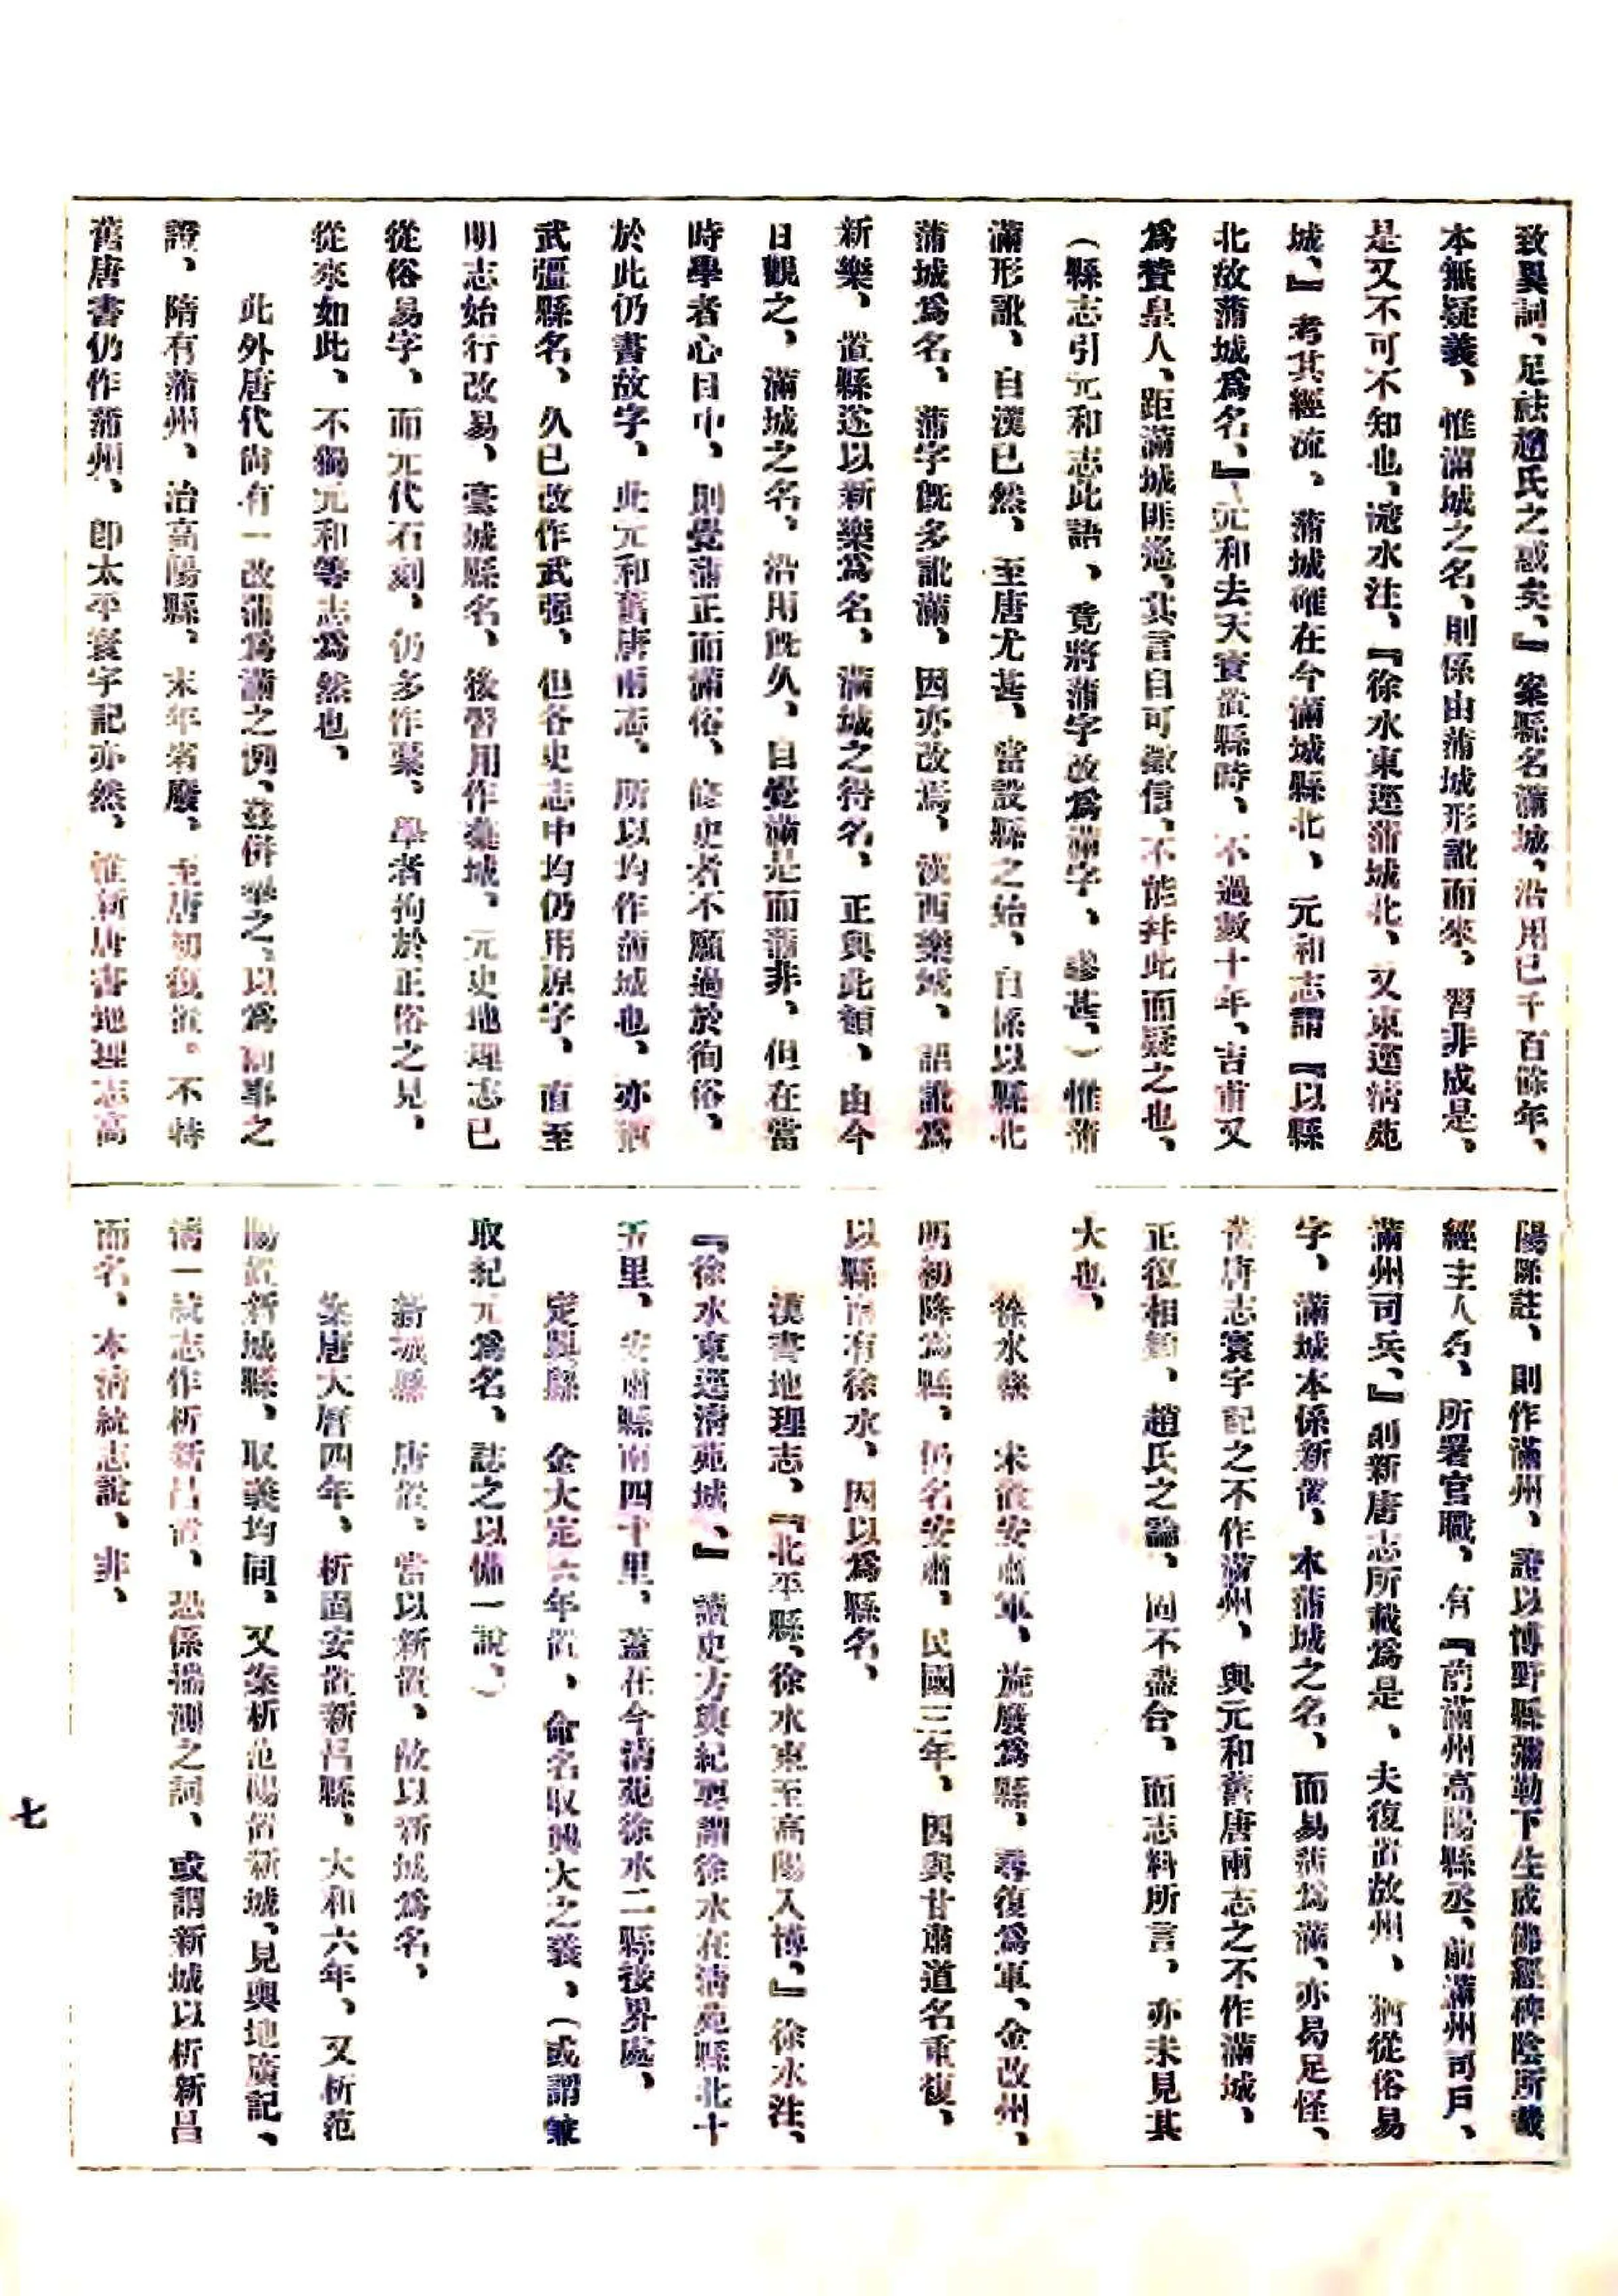 致異詞、足祛趙氏之惑矣、』案縣名滿城、沿用已千百餘年、
本無疑義、惟滿城之名、則係由蒲城形訛而來、習非成是、
是又不可不知也、滱水注、『徐水東逕蒲城北、又東逕淸苑
城、』考其經流、蒲城確在今滿城縣北、元和志謂『以縣
北故蒲城爲名、』元和去天寳置縣時、不過數十年、吉甫又
爲贊皇人、距滿城匪遙、其言自可徵信、不能幷此而疑之也、
(縣志引元和志此語、竟將蒲字改爲滿字、謬甚、)惟蒲
滿形訛、自漢已然、至唐尤甚、當設縣之始、自係以縣北
蒲城爲名、蒲字旣多訛滿、因亦改焉、漢西樂城、語訛爲
新樂、置縣遂以新樂爲名、滿城之得名、正與此類、由今
日觀之、滿城之名、沿用旣久、自覺滿是而蒲非、但在當
時學者心目中、則覺蒲正而滿俗、修史者不願過於徇俗、
於此仍書故字、此元和舊唐兩志、所以均作蒲城也、亦猶
武彊縣名、久已改作武强、但各史志中均仍用原字、直至
明志始行改易、藁城縣名、後習用作槀城、元史地理志已
從俗易字、而元代石刻、仍多作藁、學者拘於正俗之見、
從來如此、不獨元和等志爲然也、
此外唐代尙有一改蒲爲滿之例、茲併舉之、以爲前事之
證、隋有蒲州、治高陽縣、末年省廢、至唐初復置、不特
舊唐書仍作蒲州、卽太平寰宇記亦然、惟新唐書地理志高
陽縣註、則作滿州、證以博野縣彌勒下生成佛經碑陰所載
經主人名、所署官職、有『前滿州高陽縣丞、前滿州司戶、
滿州司兵、』則新唐志所載爲是、夫復置故州、猶從俗易
字、滿城本係新置、本蒲城之名、而易蒲爲滿、亦曷足怪、
舊唐志寰宇記之不作滿州、與元和舊唐兩志之不作滿城、
正復相類、趙氏之論、固不盡合、而志料所言、亦未見其
大也、
徐水縣　宋置安肅軍、旋廢爲縣、尋復爲軍、金改州、
明初降爲縣、仍名安肅、民國三年、因與甘肅道名重復、
以縣南有徐水、因以爲縣名、
漢書地理志、『北平縣、徐水東至高陽入博、』徐水注、
『徐水東逕淸苑城、』讀史方輿紀要謂徐水在淸苑縣北十
五里、安肅縣南四十里、蓋在今淸苑徐水二縣接界處、
定興縣　金大定六年置、命名取興大之義、(或謂兼
取紀元爲名、誌之以備一說、)
新城縣　唐置、當以新置、故以新城爲名、
案唐大曆四年、析固安置新昌縣、大和六年、又析范
陽置新城縣、取義均同、又案析范陽置新城、見輿地廣記、
淸一統志作析新昌置、恐係揣測之詞、或謂新城以析新昌
而名、本淸統志說、非、
七